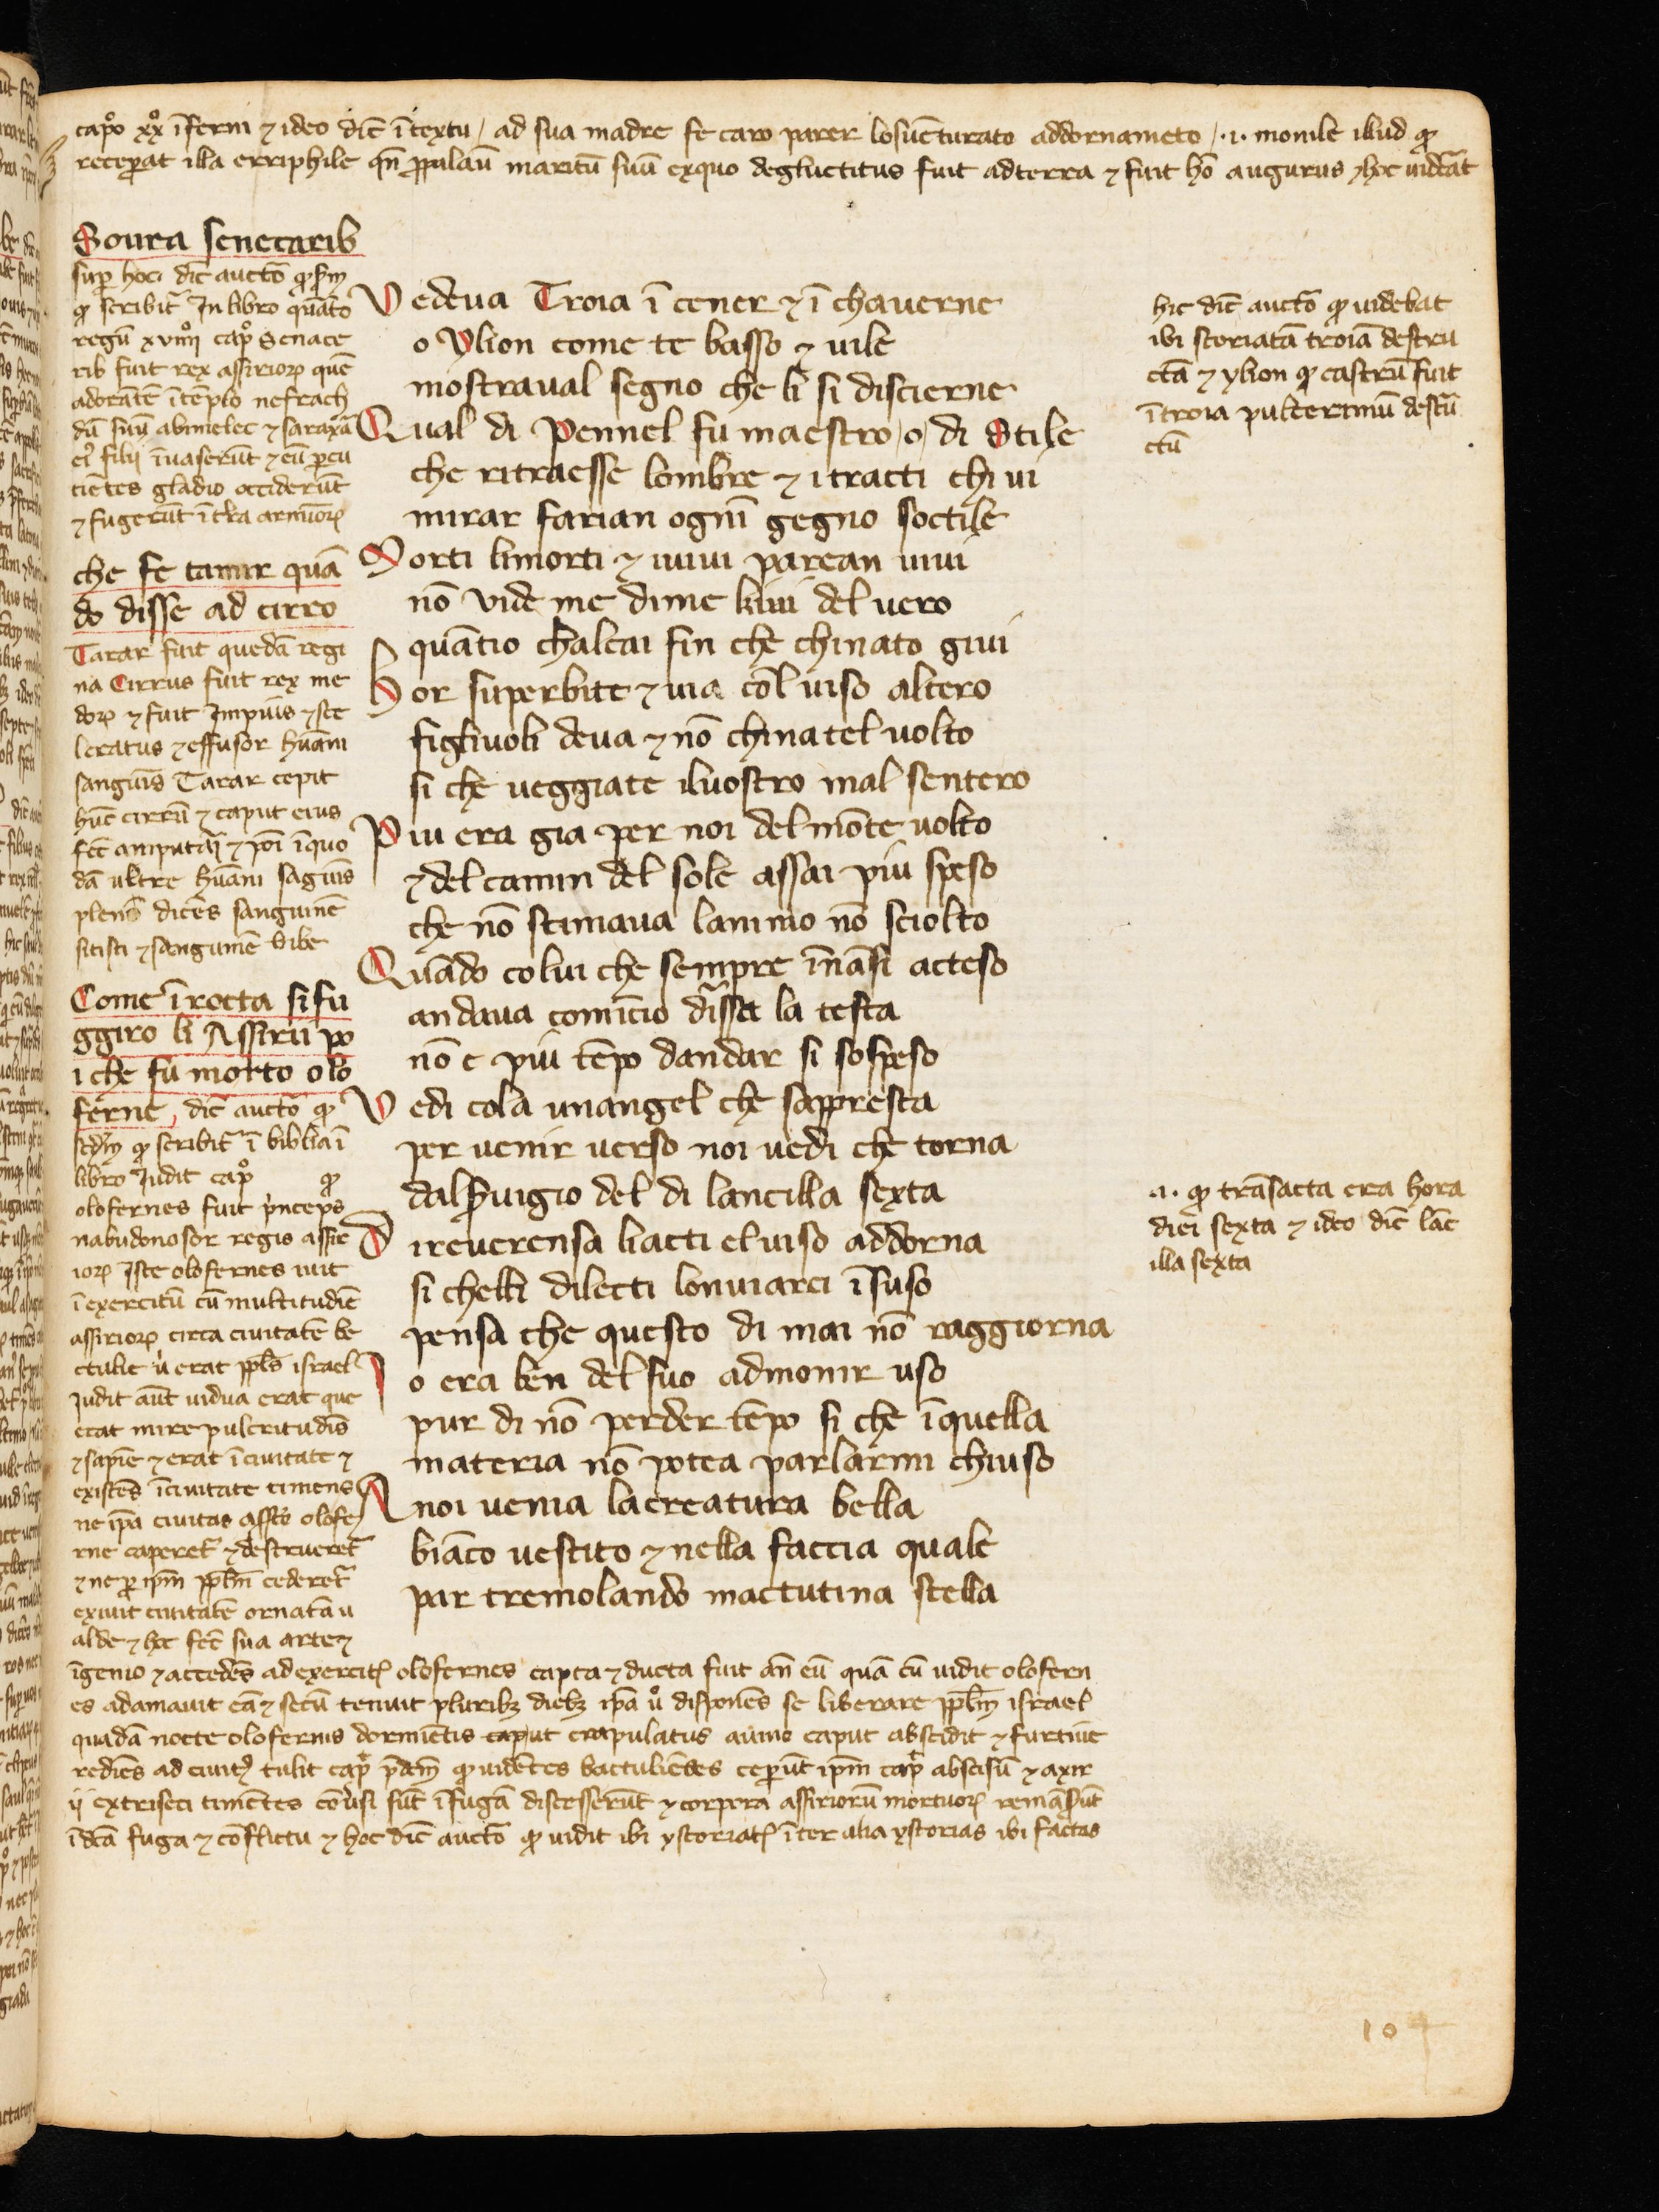 capº xxº īferni ⁊ ideo dic̄ ī textu / ad sua madre fe caro parer losuēturato addornameto / .i. monile illud ꝙ
receperat illa erriphile qn̄ ꝓpalauͥ maritū suū exquo degluctitus fuit adterra ⁊ fuit hō augurus ⁊ hoc uidebāt
Soura senecarib
sup hoc dic̄ auctō ꝙ scd̄m
ꝙ scribit̄ In libro quāto
regū xviiii capº Senace
rib fuit rex assirioꝝ quē
adorātē ītēplo nefrach
dū suū abimelec ⁊ saraxā
eiͥ filij īuaserūt ⁊ eū pcu
tiētes gladio occiderūt
⁊ fugerūt ī tr̄a armūoꝝ
che fe tamir quā
do disse ad cirro
Tarar fuit quedā regi
na Cirrus fuit rex me
doꝝ ⁊ fuit Impiuͥs ⁊ sce
leratus ⁊ effusor hūani
sanguīs Tarar cepit
hūc cirrū ⁊ caput eius
fec̄ amputari ⁊ poī īquo
dā ultre hūani saguīs
plenō dicēs sanguinē
sitisti ⁊ sanguinē bibe
Come īrocta si fu
ggiro li Assirii po
i che fu morto olo
ferne, dic̄ auctō ꝙ
scd̄m ꝙ scribit̄ ī biblia ī
libro Iudit capº ꝙ
olofernes fuit pͥnceps
nabudonosor regis assie
ioꝝ Iste olofernes iuit
ī exercitū cū multitudīe
assirioꝝ circa ciuitatē be
ctulie uͥ erat ppl̄s israel
Iudit aūt uidua erat que
erat mire pulcritudīs
⁊ sapīe ⁊ erat ī ciuitate ⁊
existēs īciuitate timens
ne ip̄a ciuitas assͦ olofe
rne caperet̄ ⁊ destrueret̄
⁊ ne ꝑ ip̄m ppl̄m cederet̄
exiuit ciuitatē ornatā u
alde ⁊ hoc fec̄ sua arte ⁊
īgenio ⁊ accedēs ad exercitꝫ olofernes capta ⁊ ducta fuit an̄ eū quā cū uidit olofern
es adamauit eā ⁊ secū tenuit pluribꝫ diebꝫ ip̄a uͦ disponēs se liberare ppl̄m israel
quadā nocte olofernis dormiētis caput crapulatus caput abscidit ⁊ furtiue
rediēs ad ciuitꝫ tulit cap̄ p̄dc̄m ꝙ uidētes bactuliēses ceperūt ip̄m cap̄ abscisū
extrīseci timētes cōuͥsi sūt ī fugā discesserūt ⁊ corpora assiriorū mortuoꝝ remāserūt
ī dc̄a fuga ⁊ cōflictu ⁊ hoc dic̄ auctō ꝙ uidit ibi ystoriatꝫ īter alia ystorias ibi factas
Vedeua Troia ī cener ⁊ ī chauerne
o Ylion come te basso ⁊ uile
mostraual segno che li si discierne
Qual di Pennel fu maestro, o, di Stile
che ritraesse lombre ⁊ i tracti chi ui
mirar farian ognī gegno soctile
Morti limorti ⁊ iuiui parean uiui
nō vide me dime kiui del uero
quātio chalcai fin che chinato giui
Hor superbite ⁊ uia cōl uiso altero
figliuoli deua ⁊ nō chinatel uolto
si che ueggiate iluostro mal sentero
Piu era gia per noi del mōte uolto
⁊ del camin del sole assai piu speso
che nō stimaua lanimo nō sciolto
Quādo colui che sempre īnāsi acteso
andaua comīcio drissa la testa
nō e piu tēpo dandar si sospeso
Vedi cola unangel che sappresta
per venir verso noi vedi che torna
dal seruigio del di lancilla sexta
Direuerensa liacti el uiso addorna
si chelli dilecti lonuiarci ī suso
pensa che questo di mai nō raggiorna
Io era ben del suo admonir uso
pur di nō perder tēpo si che īquella
materia nō potea parlarmi chiuso
A noi uenia lacreatura bella
biāco uestito ⁊ nella faccia quale
par tremolando mactutina stella
hic dic̄ auctō ꝙ uidebat
ibi storiatā troiā destru
ctā ⁊ ylion ꝙ castrū fuit
ī troia pulcerimū destͥu
ctū
.i. ꝙ trāsacta era hora
diei sexta ⁊ ideo dic̄ lāc
illa sexta
10